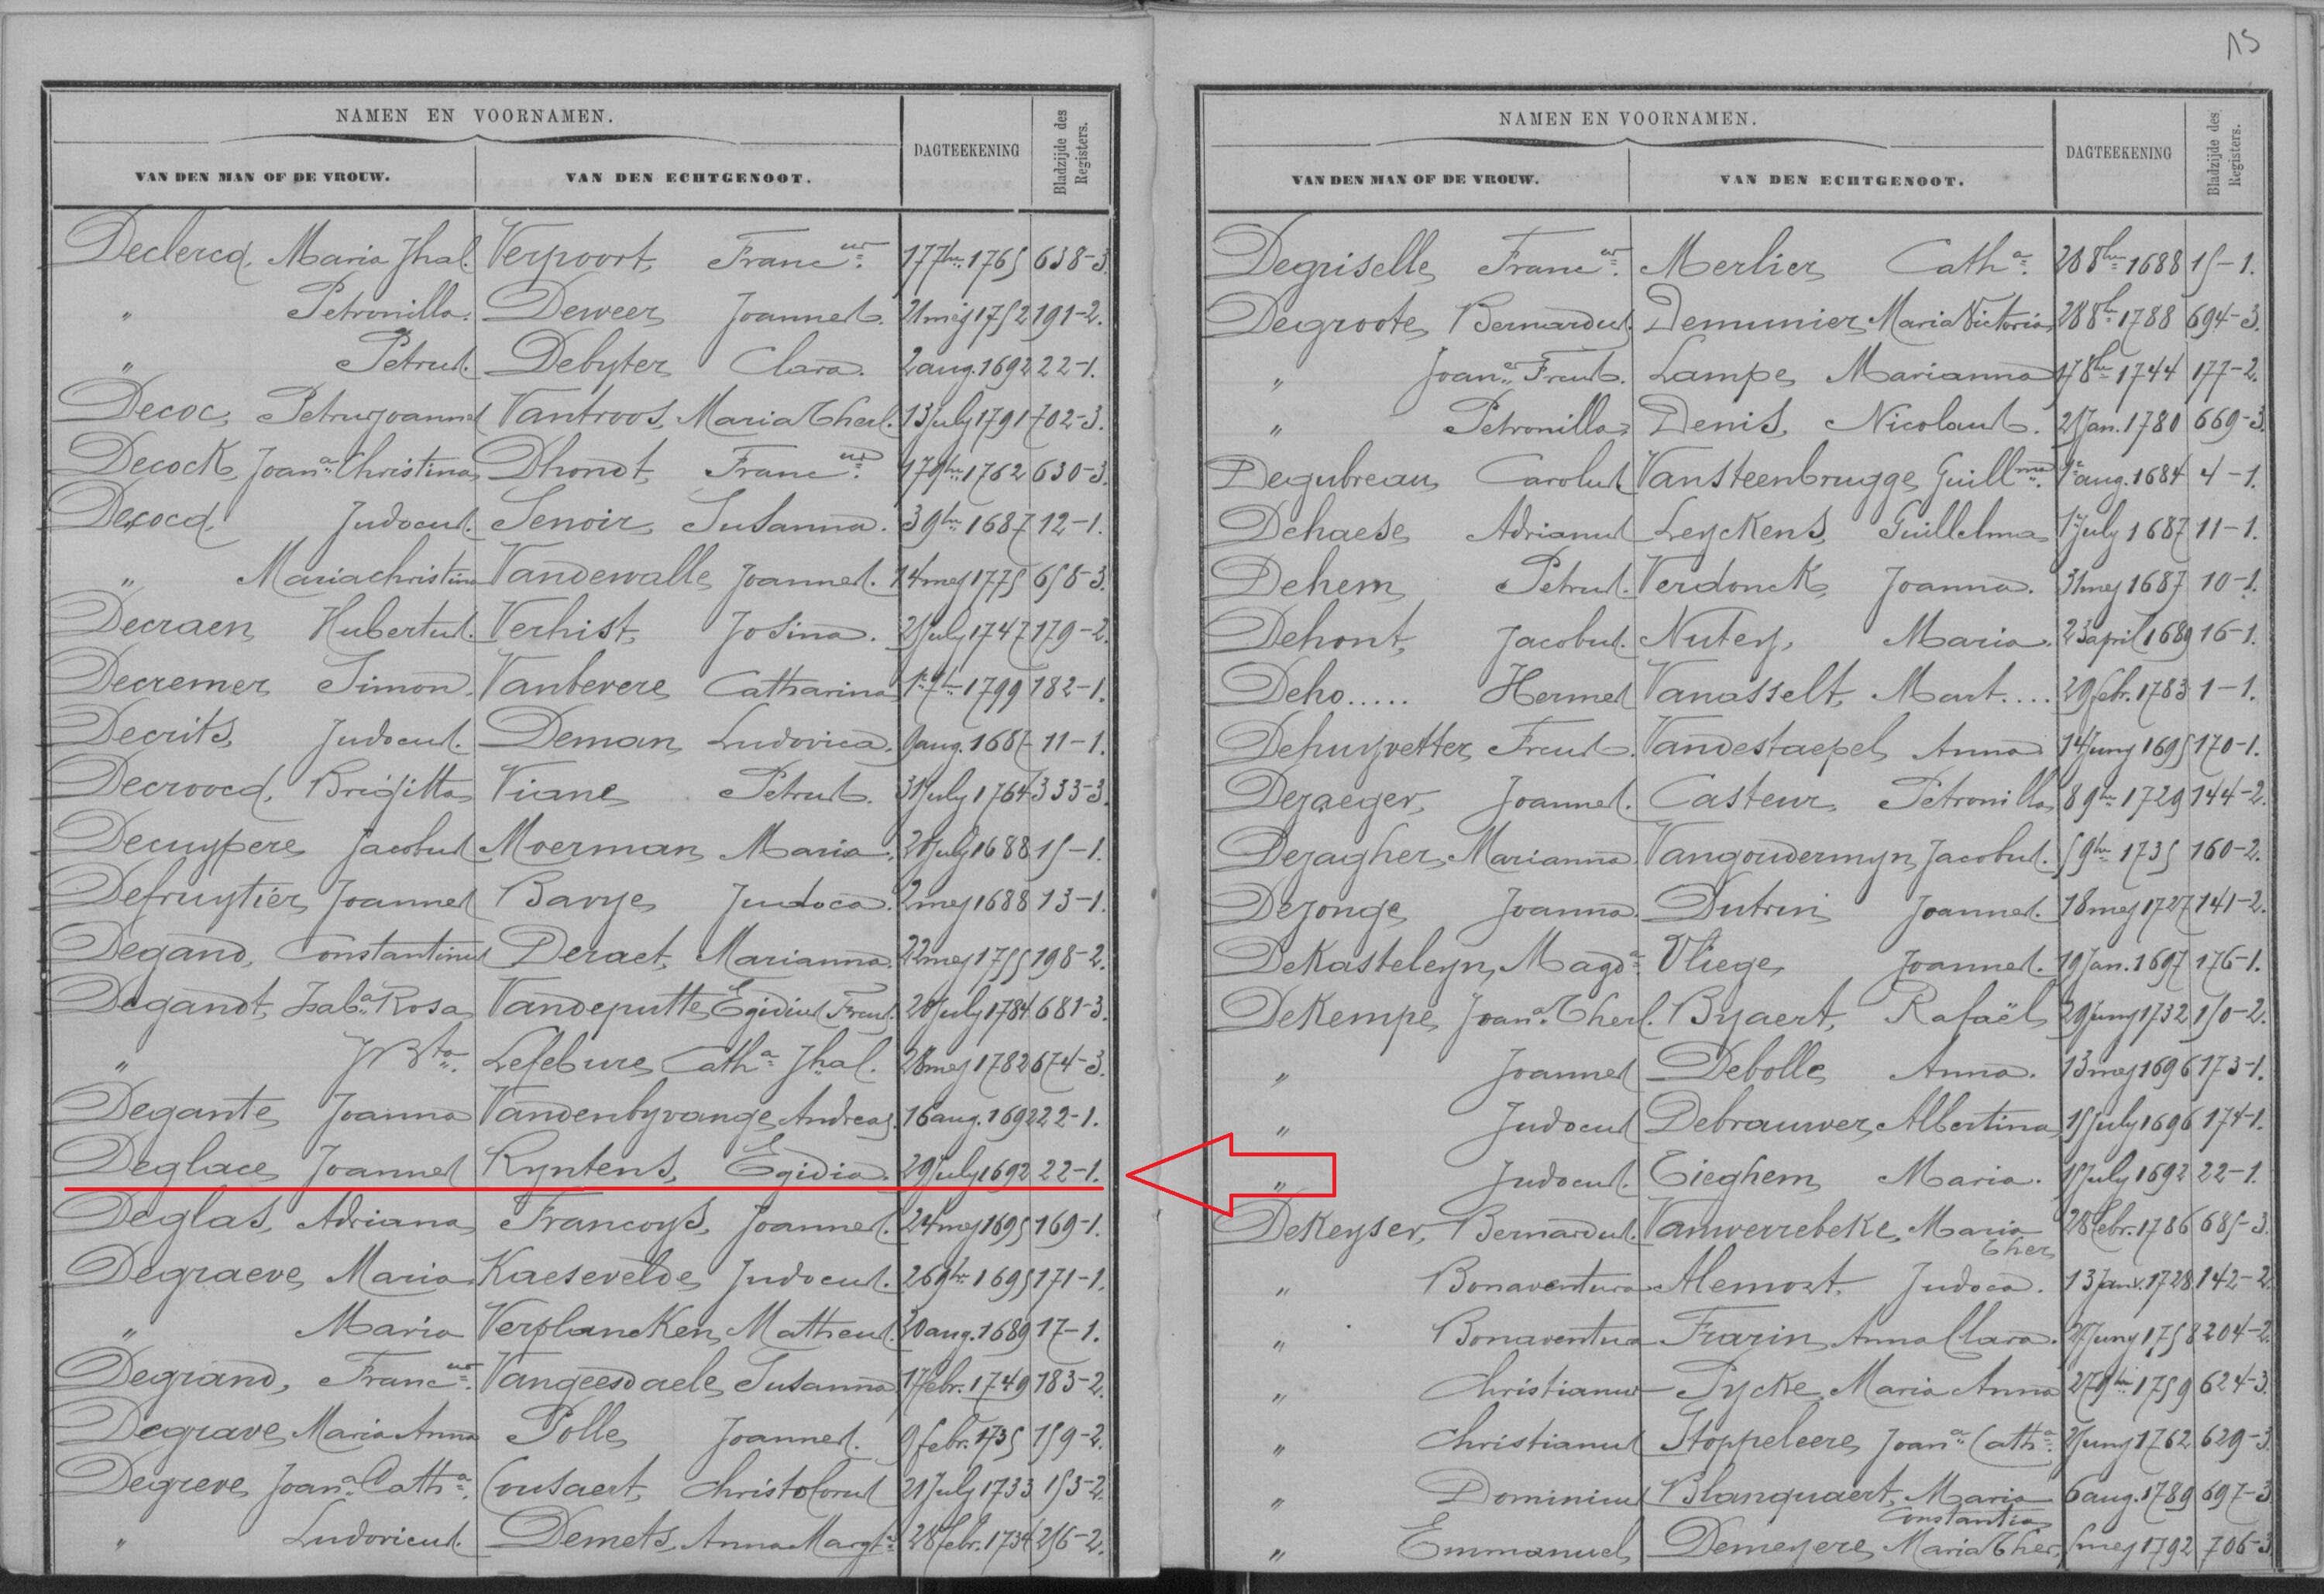 15
NAMEN EN VOORNAMEN.
VAN DEN MAN OF DE VROUW.
VAN DEN ECHTGENOOT.
DAGTEEKENING
Bladzijde des Registers.
Declercq, Maria Jhal. Verpoort, Franc.us 17 7bre 1765 638-3.
" Petronilla. Deweer, Joannes. 21 mey 1752 191-2.
" Petrus. Debyter, Clara. 2 aug. 1692 22-1.
Decoc, Petrus joannes Vantroos, Maria Ther. 13 July 1791 702-3.
Decock, Joan.a Christina, Dhondt, Franc.us 17 9bre 1762 630-3.
Decocq, Judocus. Senoir, Susanna. 3 9bre 1687 12-1.
" Maria christina Vandewalle, Joannes. 14 mey 1775 658-3.
Decraen, Hubertus. Verhist, Josina. 2 July 1747 179-2.
Decremer, Simon. Vanbevere, Catharina, 1e 7bre 1799 182-1.
Decrits, Judocus. Deman, Ludovica. 9 aug. 1687 11-1.
Decroocq, Brigitta, Viane, Petrus. 31 July 1764 333-3.
Decuypere, Jacobus Moerman, Maria. 21 July 1688 15-1.
Defruytier, Joannes Bavye, Judoca. 2 mey 1688 13-1.
Degand, Constantinus Deraet, Marianna. 22 mey 1755 198-2.
Degandt, Isab.a Rosa, Vandeputte, Egidius Frans. 20 July 1784 681-3.
" J Bta. Lefebure, Cath.a Jhal. 28 mey 1782 674-3.
Degante, Joanna Vandenbyvange, Andreas. 16 aug. 1692 22-1.
Deglace, Joannes Ryntens, Egidia. 29 July 1692 22-1.
Deglas, Adriana, Francoys, Joannes. 24 mey 1695 169-1.
Degraeve, Maria. Kaesevelde, Judocus. 26 9bre 1695 171-1.
" Maria Verplancken, Matheus. 20 aug. 1689 17-1.
Degrand, Franc.us Vangeesdaele, Susanna. 17 febr. 1749 183-2.
Degrave, Maria Anna Polle, Joannes. 9 febr. 1735 159-2.
Degreve, Joan.a Cath.a Cousaert, Christoforus 21 July 1733 153-2.
" Ludovicus. Demets, Anna Margta 28 febr. 1734 256-2.
NAMEN EN VOORNAMEN.
VAN DEN MAN OF DE VROUW.
VAN DEN ECHTGENOOT.
DAGTEEKENING
Bladzijde des Registers.
Degriselle, Franc.us Merlier, Cath.a 28 8bre 1688 15-1.
Degroote, Bernardus. Demunier, Maria Victoria, 28 8bre 1788 694-3.
" Joan.es Frans. Lampe, Marianna 17 8bre 1744 177-2.
" Petronilla, Denis, Nicolaus. 21 Jan. 1780 669-3.
Degubreau, Carolus Vansteenbrugge, Guill.ma 1e aug. 1684 4-1.
Dehaese, Adrianus Leyckens, Guillelma, 1e July 1687 11-1.
Dehem, Petrus. Verdonck, Joanna. 31 mey 1687 10-1.
Dehont, Jacobus. Nutey, Maria. 23 april 1689 16-1.
Deho..... Hermes Vanasselt, Mart.... 29 febr. 1783 1-1.
Dehuyvetter, Frans. Vandestaepel, Anna 14 Juny 1695 170-1.
Dejaeger, Joannes. Casteur, Petronilla, 8 9bre 1729 144-2.
Dejagher, Marianna. Vangoudermyn, Jacobus. 5 9bre 1735 160-2.
Dejonge, Joanna. Dutrin, Joannes. 18 mey 1727 141-2.
DeKasteleyn, Magd.a Vliege, Joannes. 19 Jan. 1697 176-1.
DeKempe, Joan.a Ther. Byaert, Rafaël, 29 Juny 1732 150-2.
" Joannes Debolle, Anna. 13 mey 1696 173-1.
" Judocus Debrauwer, Albertina, 15 July 1696 174-1.
" Judocus. Tieghem, Maria. 15 July 1692 22-1.
DeKeyser, Bernardus. Vanwerrebeke, Maria Ther, 28 febr. 1786 685-3.
" Bonaventura Alemozt, Judoca. 13 Janv. 1728 142-2.
" Bonaventura Frarin, Anna Clara. 27 Juny 1758 204-2.
" Christianus Pycke, Maria Anna 27 9bre 1759 624-3.
" Christianus Stoppeleere, Joan.a Cath.a 2 Juny 1762 629-3.
" Dominicus Blanquaert, Maria Constantia, 6 aug. 1789 697-3.
" Emmanuel, Demeyere, Maria Ther. 5 mey 1792 706-3.